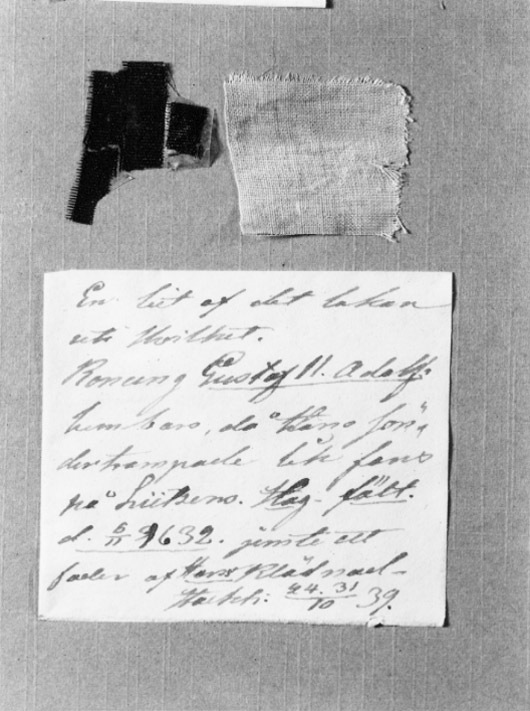 En bit af det lakan
uti hvilket.
Konung Gustaf II. Adolf.
hembars, då Hans sön-
dertrampade lik fans
på Lützens. Slag-fält.
d. 6/11 1632. jemte ett
foder af Hans Klädnad
31/10 39.